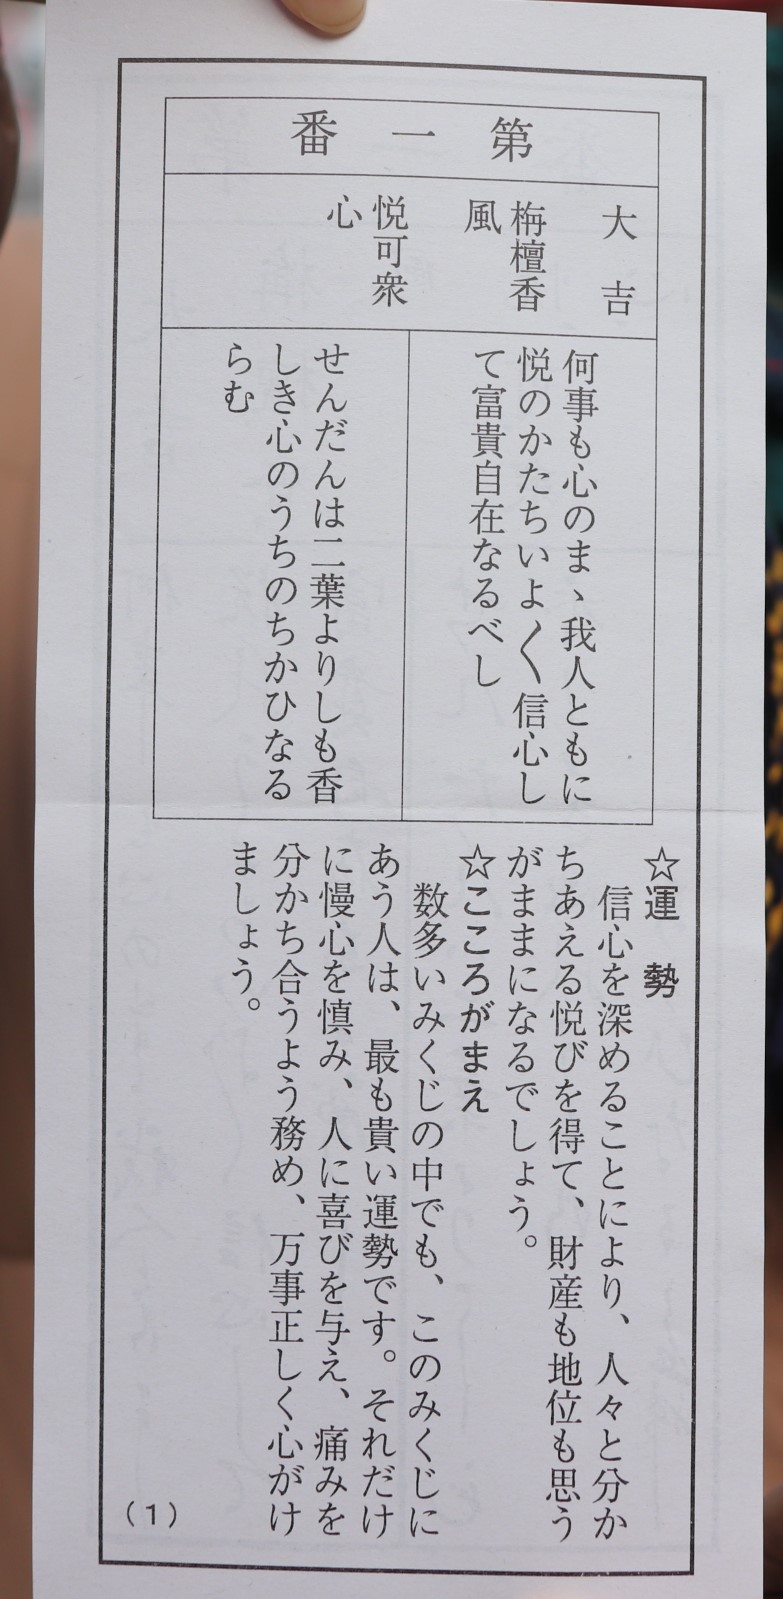 第一番
大吉
栴檀香
風
悦可衆
心
何事も心のまゝ我人ともに
悦のかたちいよ〱信心し
て富貴自在なるべし
せんだんは二葉よりしも香
しき心のうちのちかひなる
らむ
☆運　勢
信心を深めることにより、人々と分か
ちあえる悦びを得て、財産も地位も思う
がままになるでしょう。
☆こころがまえ
数多いみくじの中でも、このみくじに
あう人は、最も貴い運勢です。それだけ
に慢心を慎み、人に喜びを与え、痛みを
分かち合うよう務め、万事正しく心がけ
ましょう。
（1）